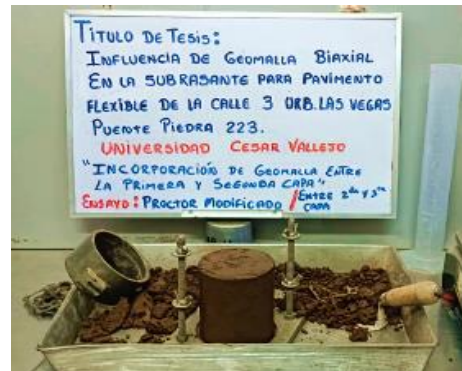 TÍTULO DE TESIS:
INFLUENCIA DE GEOMALLA BIAXIAL
EN LA SUBRASANTE PARA PAVIMENTO
FLEXIBLE DE LA CALLE 3 URB. LAS VEGAS
PUENTE PIEDRA 223.
UNIVERSIDAD CESAR VALLEJO
"INCORPORACIÓN DE GEOMALLA ENTRE
LA PRIMERA Y SEGUNDA CAPA"
ENSAYO: PROCTOR MODIFICADO / ENTRE 2da Y 3ra
CAPA